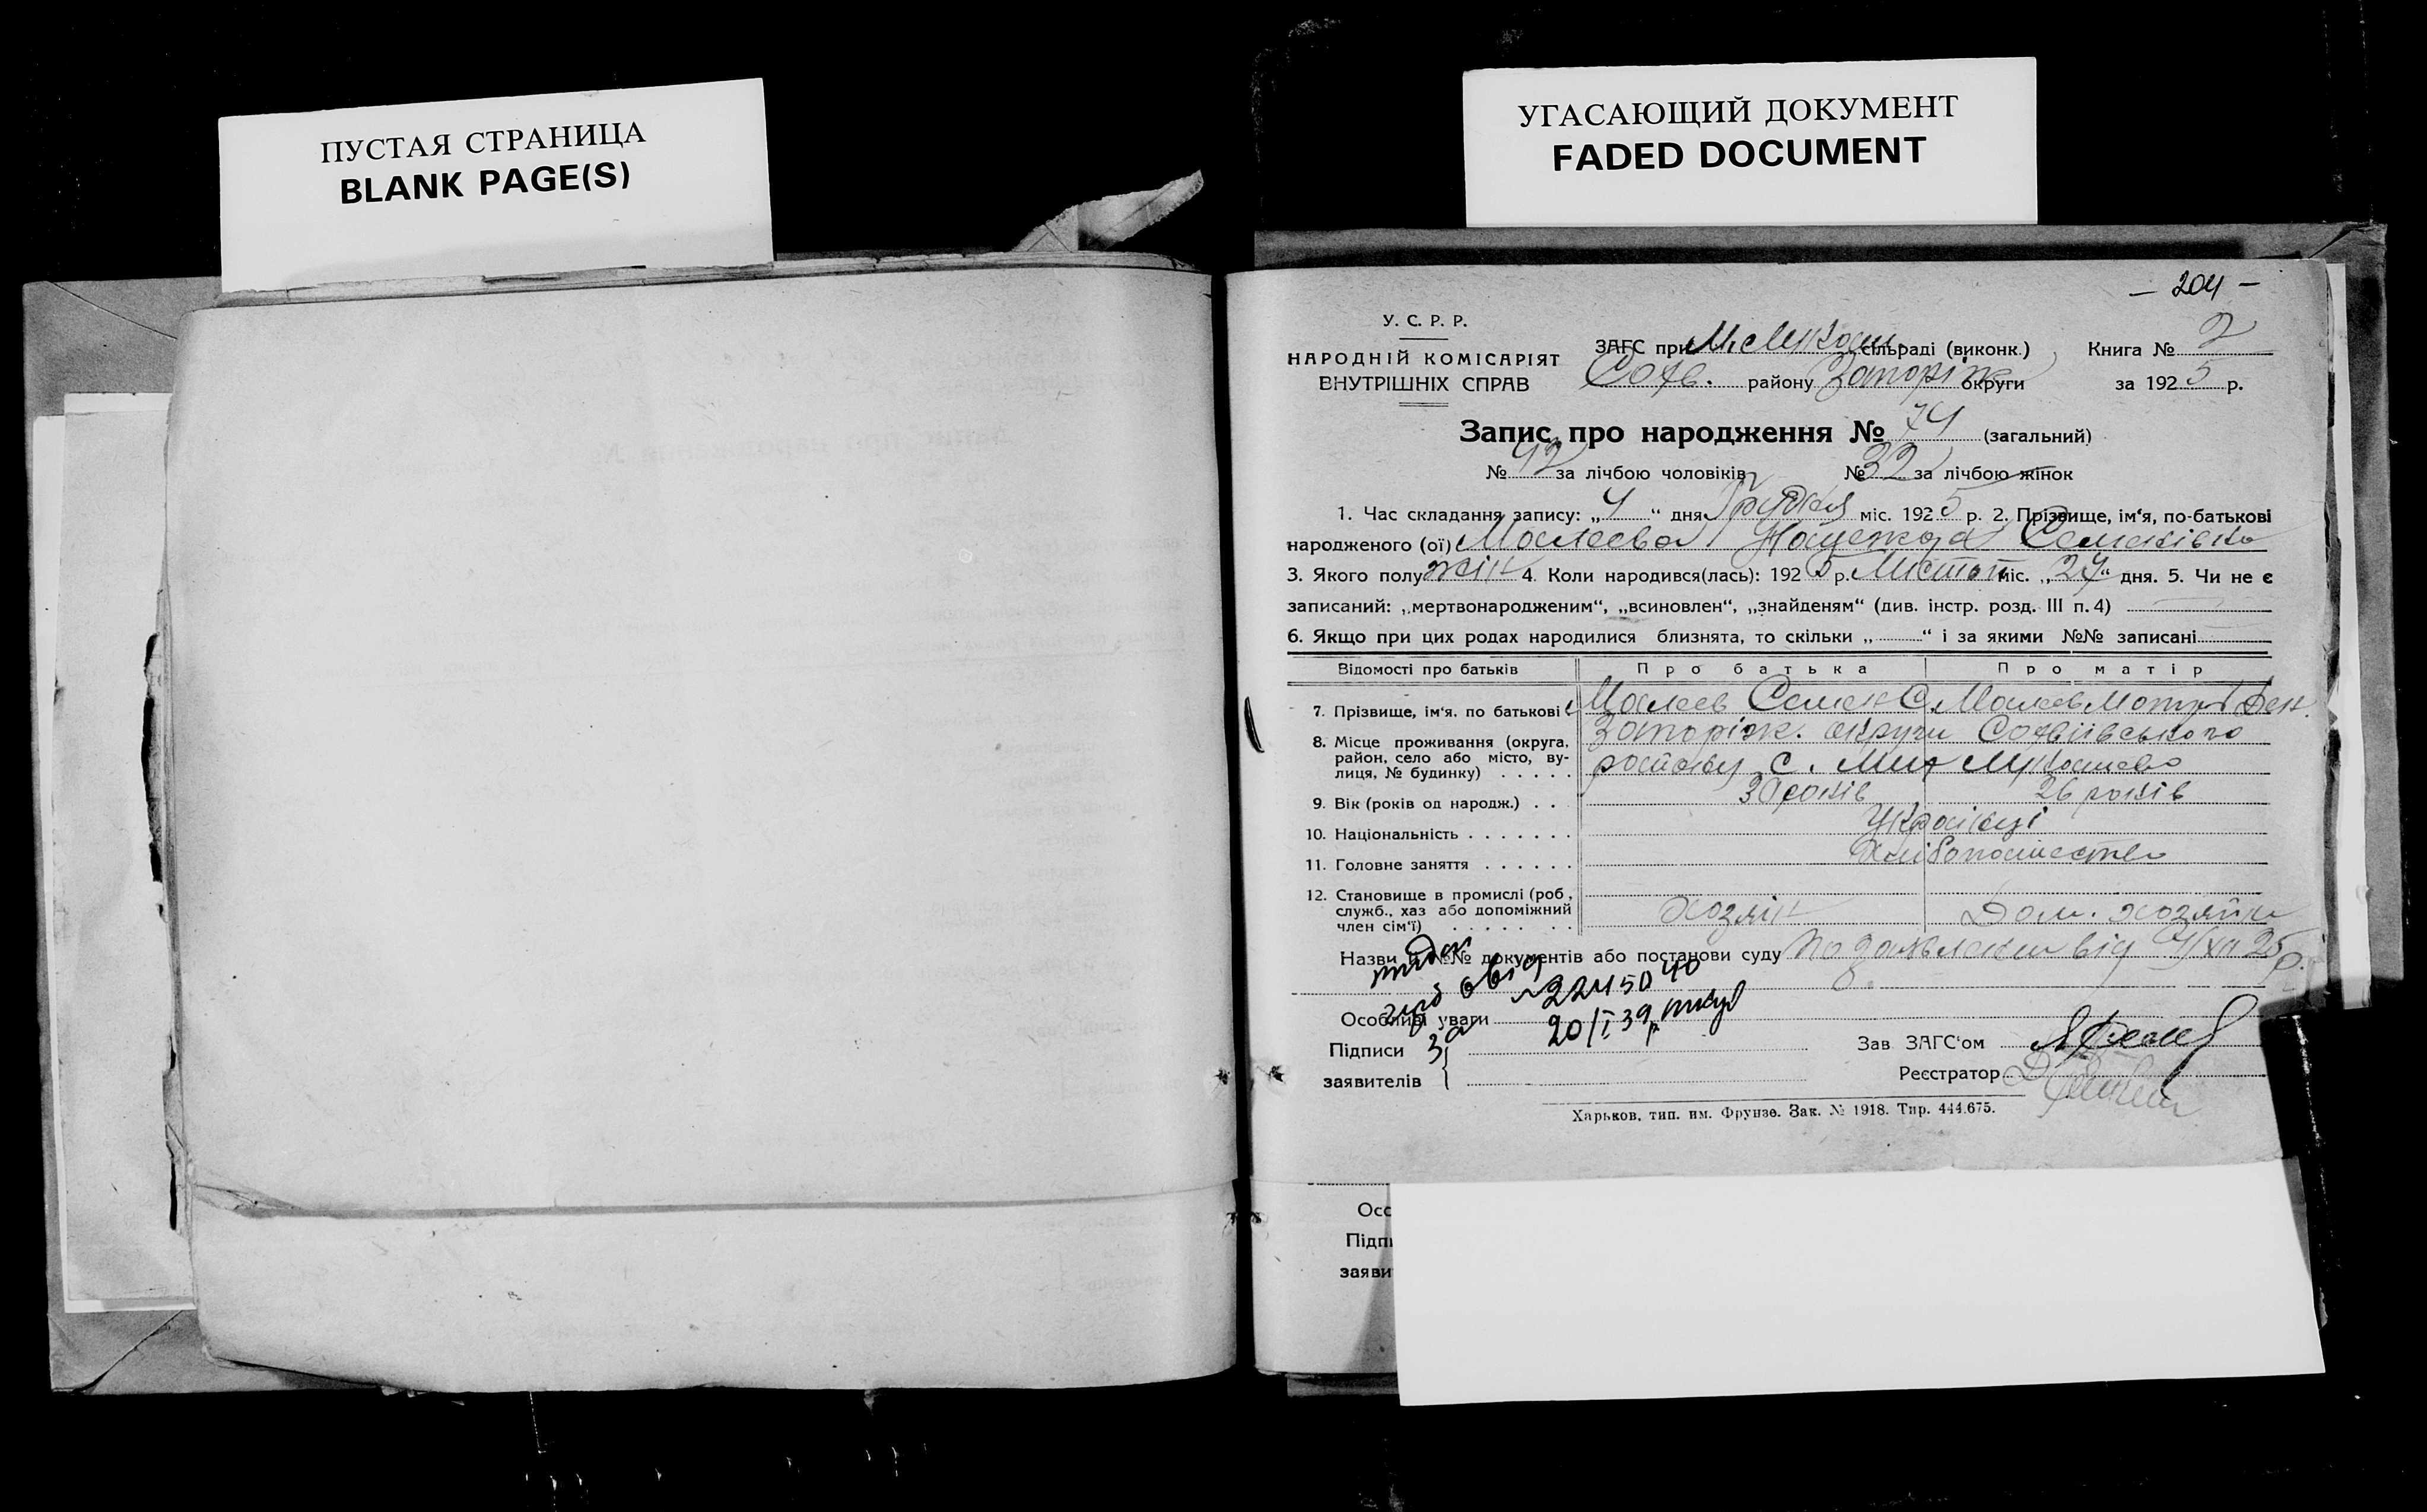 ПУСТАЯ СТРАНИЦА
BLANK PAGE(S)
УГАСАЮЩИЙ ДОКУМЕНТ
FADED DOCUMENT
— 204 —
У. С. Р. Р.
НАРОДНІЙ КОМІСАРІЯТ
ВНУТРІШНІХ СПРАВ
ЗАГС при М. Лукаш. сільраді (виконк.) Книга № 2
Софв. району Запоріж округи за 1925 р.
Запис про народження № 74 (загальний)
№ 42 за лічбою чоловіків № 32 за лічбою жінок
1. Час складання запису: „4“ дня Грудня міс. 1925 р. 2. Прізвище, ім‘я, по-батькові
народженого (ої) Надежда Семенівна
3. Якого полу жін 4. Коли народився(лась): 1925 р. Листоп міс. „24“ дня. 5. Чи не є
записаний: „мертвонародженим“, „всиновлен“, „знайденям“ (див. інстр. розд. III п. 4)
6. Якщо при цих родах народилися близнята, то скільки „ “ і за якими №№ записані
Відомості про батьків Про батька Про матір
7. Прізвище, ім‘я, по батькові Семен С. Мотря
8. Місце проживання (округа, район, село або місто, вулиця, № будинку) Запоріж. округи Софіївського
району с. Лукашево
9. Вік (років од народж.) 30 років 26 років
10. Національність Українці
11. Головне заняття Хлібопашество
12. Становище в промислі (роб., служб., хаз або допоміжний член сім‘ї) Хозяін Дом. хозяйка
Назви й №№ документів або постанови суду По заявленню від 4/XII 25 р.
Особливі уваги
20/I 39 р
Підписи
заявителів
Зав ЗАГС‘ом
Реєстратор
Харьков, тип. им. Фрунзе. Зак. № 1918. Тир. 444.675.
Осо
Підпи
заяви